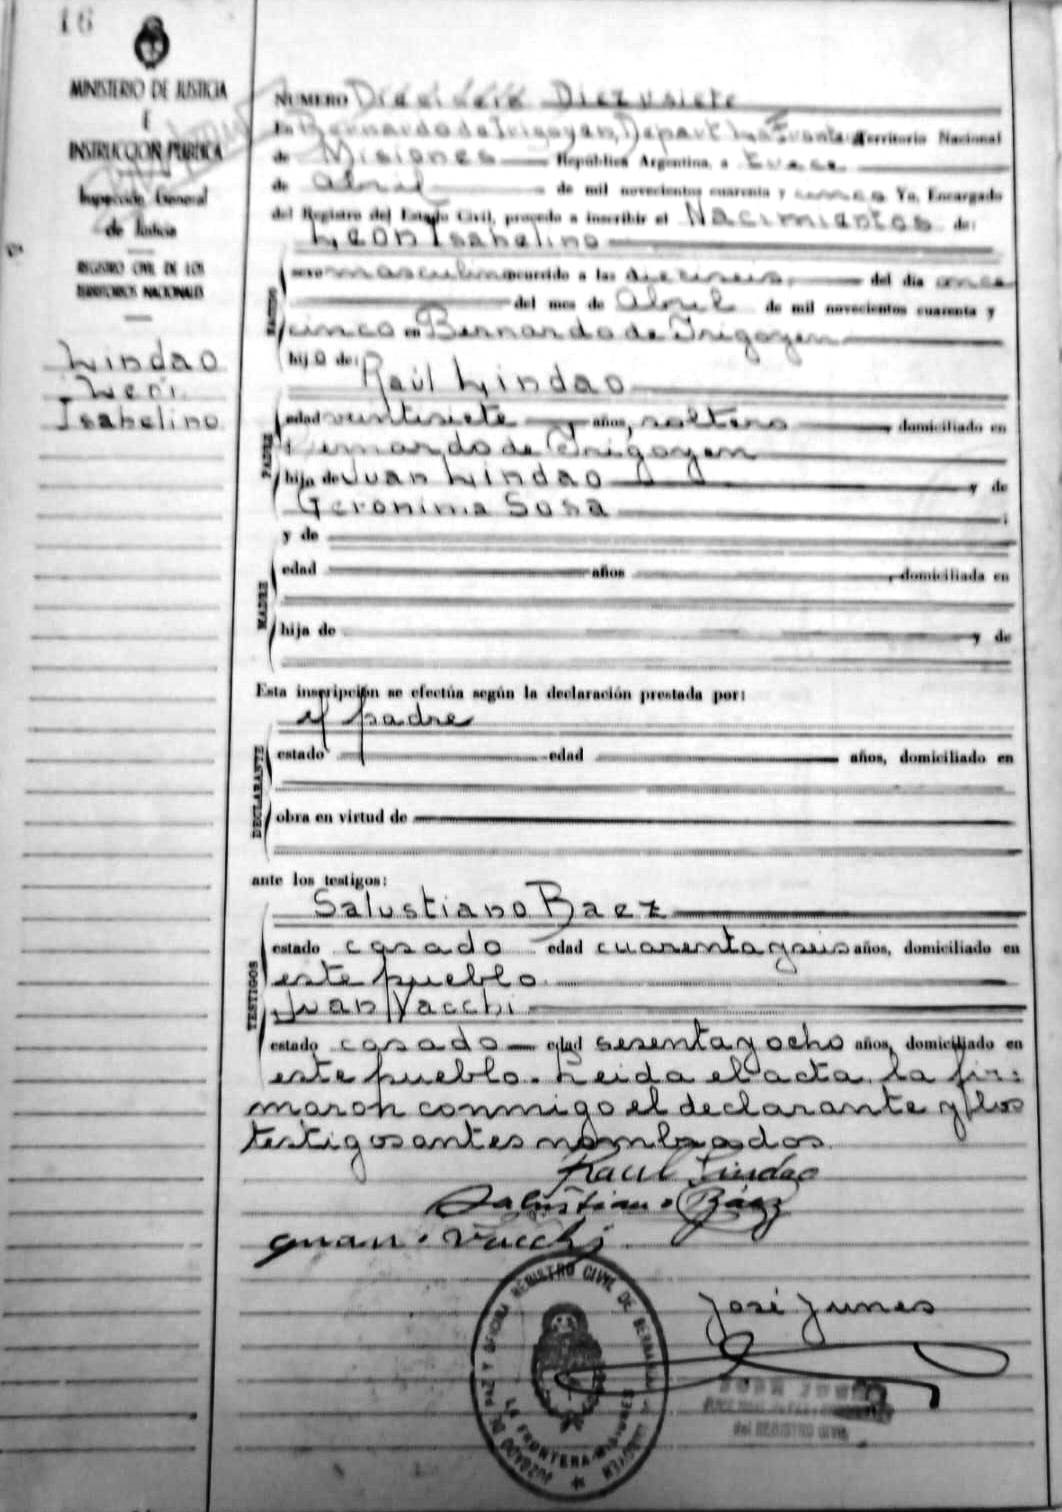 16
MINISTERIO DE JUSTICIA
E
INSTRUCCION PUBLICA
Inspección General
de Justicia
REGISTRO CIVIL DE LOS
TERRITORIOS NACIONALES
Lindao
León
Isabelino
NUMERO Diez y siete
En Bernardo de Irigoyen, Depart. La Frontera Territorio Nacional
de Misiones República Argentina, a trece
de Abril de mil novecientos cuarenta y cinco Yo, Encargado
del Registro del Estado Civil, procedo a inscribir el Nacimientos de:
León Isabelino
NACIDO
sexo masculino ocurrido a las dieciseis, del día once
del mes de Abril de mil novecientos cuarenta y
cinco en Bernardo de Irigoyen
hijo de:
Raúl Lindao
PADRE
edad veintisiete años, soltero domiciliado en
Bernardo de Irigoyen
hijo de Juan Lindao y de
Geronima Sosa ;
y de
MADRE
edad años , domiciliada en
hija de y de
Esta inscripción se efectúa según la declaración prestada por:
el padre
DECLARANTE
estado edad años, domiciliado en
obra en virtud de
ante los testigos:
Salustiano Baez
TESTIGOS
estado casado edad cuarenta y seis años, domiciliado en
este pueblo
Juan Vacchi
estado casado edad sesenta y ocho años, domiciliado en
este pueblo. Leida el acta, la fir:
maron conmigo el declarante y los
testigos antes nombrados.
Raul Lindao
Salustiano Báez
Juan Vacchi
José Junes
JUZGADO DE PAZ Y OFICINA REGISTRO CIVIL DE BERNARDO DE IRIGOYEN
LA FRONTERA - MISIONES
del REGISTRO CIVIL